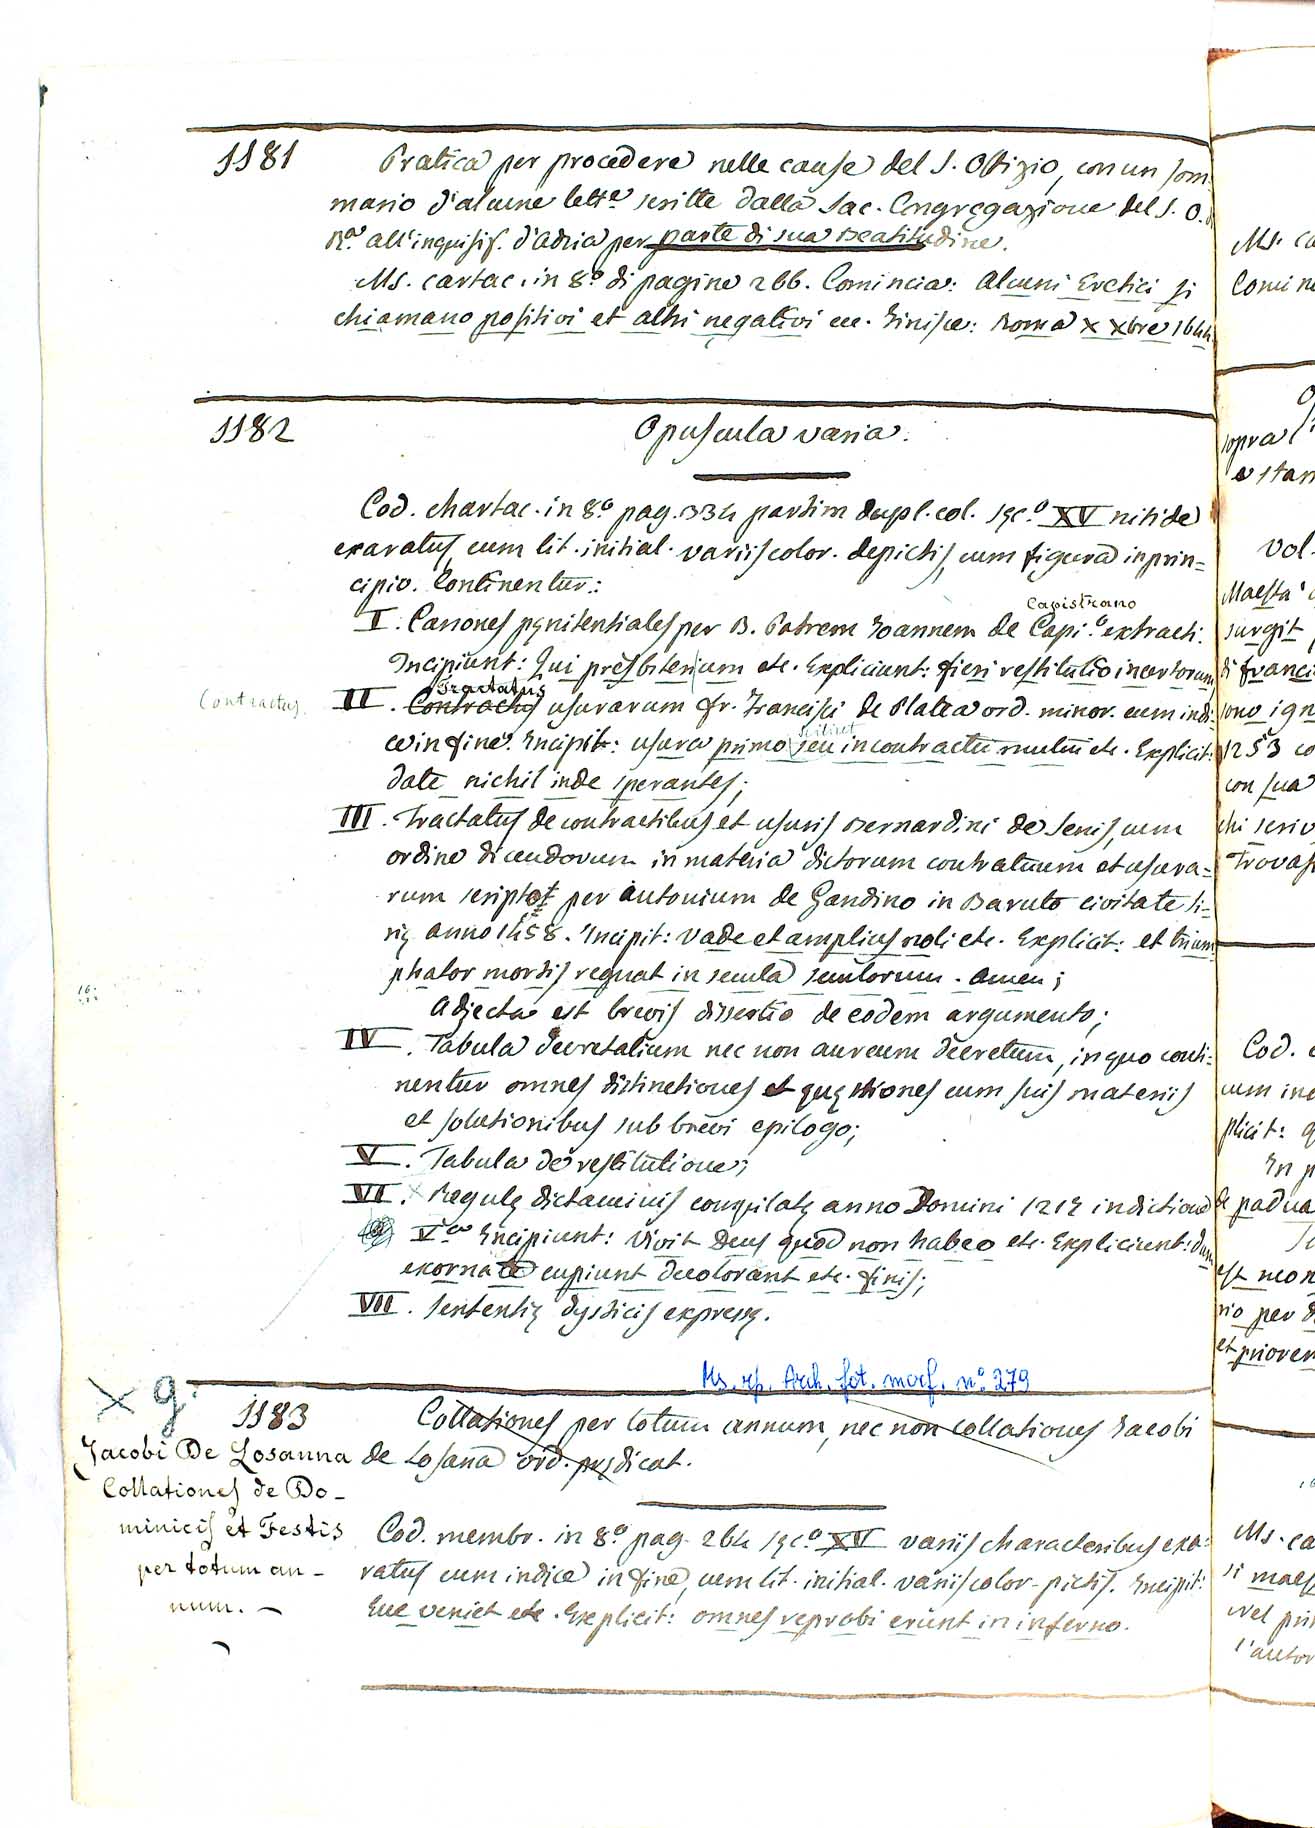 1181
Pratica per procedere nelle cause del S. Offizio, con un som-
mario d'alcune lette scritte dalla Sac. Congregazione del S. O.
Rª all'inquisis. d'Adria per parte di sua Beatitudine.
Ms. cartac. in 8º di pagine 266. Comincia: Alcuni Eretici si
chiamano positivi et altri negativi ecc. Finisce: Roma X Xbre 1644
1182
Opuscula varia.
Cod. chartac. in 8º pag. 334 partim dupl. col. sęc.º XV nitide
exaratus, cum lit. initial. variis color. depictis, cum figura in prin=
cipio. Continentur:
Capistrano
I. Canones pęnitentiales per B. Patrem Joannem de Capi.º extracti.
Incipiunt: Qui presbiterium etc. Expliciunt: fieri restitutio incertorum,
Contractus.
Tractatus
II. Contractus usurarum fr. Francisci de Platea ord. minor. cum indi=
ce in fine. Incipit: usura primo seu in contractu mutui etc. Explicit:
date nichil inde sperantes;
III. Tractatus de contractibus et usuris Bernardini de Senis, cum
ordine dicendorum in materia dictorum contratuum et usura=
rum script per Antonium de Gandino in Baruto civitate Si=
rię anno 1458. Incipit: Vade et amplius noli etc. Explicit: et trium
phator mortis regnat in secula seculorum. Amen;
Adjecta est brevis dissertio de eodem argumento;
IV. Tabula decretalium nec non aureum decretum, in quo conti=
nentur omnes distinctiones et quęstiones cum suis materiis
et solutionibus sub brevi epilogo;
V. Tabula de restitutione;
VI. Regulę dictaminis compilatę anno Domini indictione
Vª Incipiunt: Vivit Deus quod non habeo etc. Expliciunt: dum
exornate cupiunt decolorant etc. finis;
VII. Sententię dysticis expressę.
Ms. rip. Arch. fot. morf. nº 279
X g.
1183
Collationes per totum annum, nec non collationes Jacobi
de Losana ord. prędicat.
Jacobi De Losanna
Collationes de Do-
minicis et Festis
per totum an-
num.
Cod. membr. in 8º pag. 264 sęc.º XV variis characteribus exa=
ratus cum indice in fine, cum lit. initial. variis color. pictis. Incipit:
Ecce veniet etc. Explicit: omnes reprobi erunt in inferno.